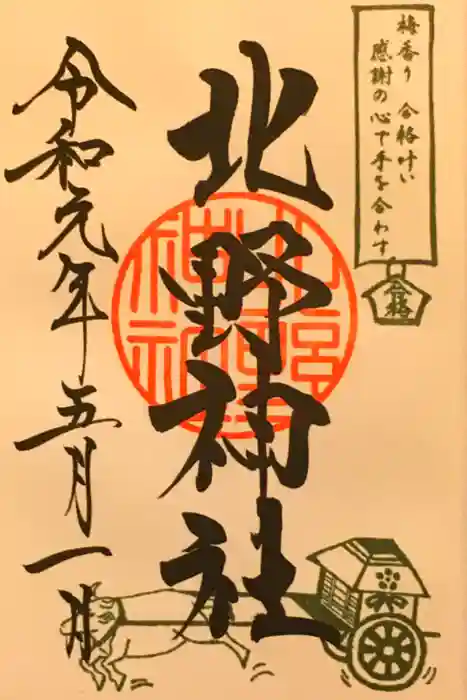 梅香り 合格叶い
感謝の心で手を合わす
合格
北野神社
令和元年五月一日